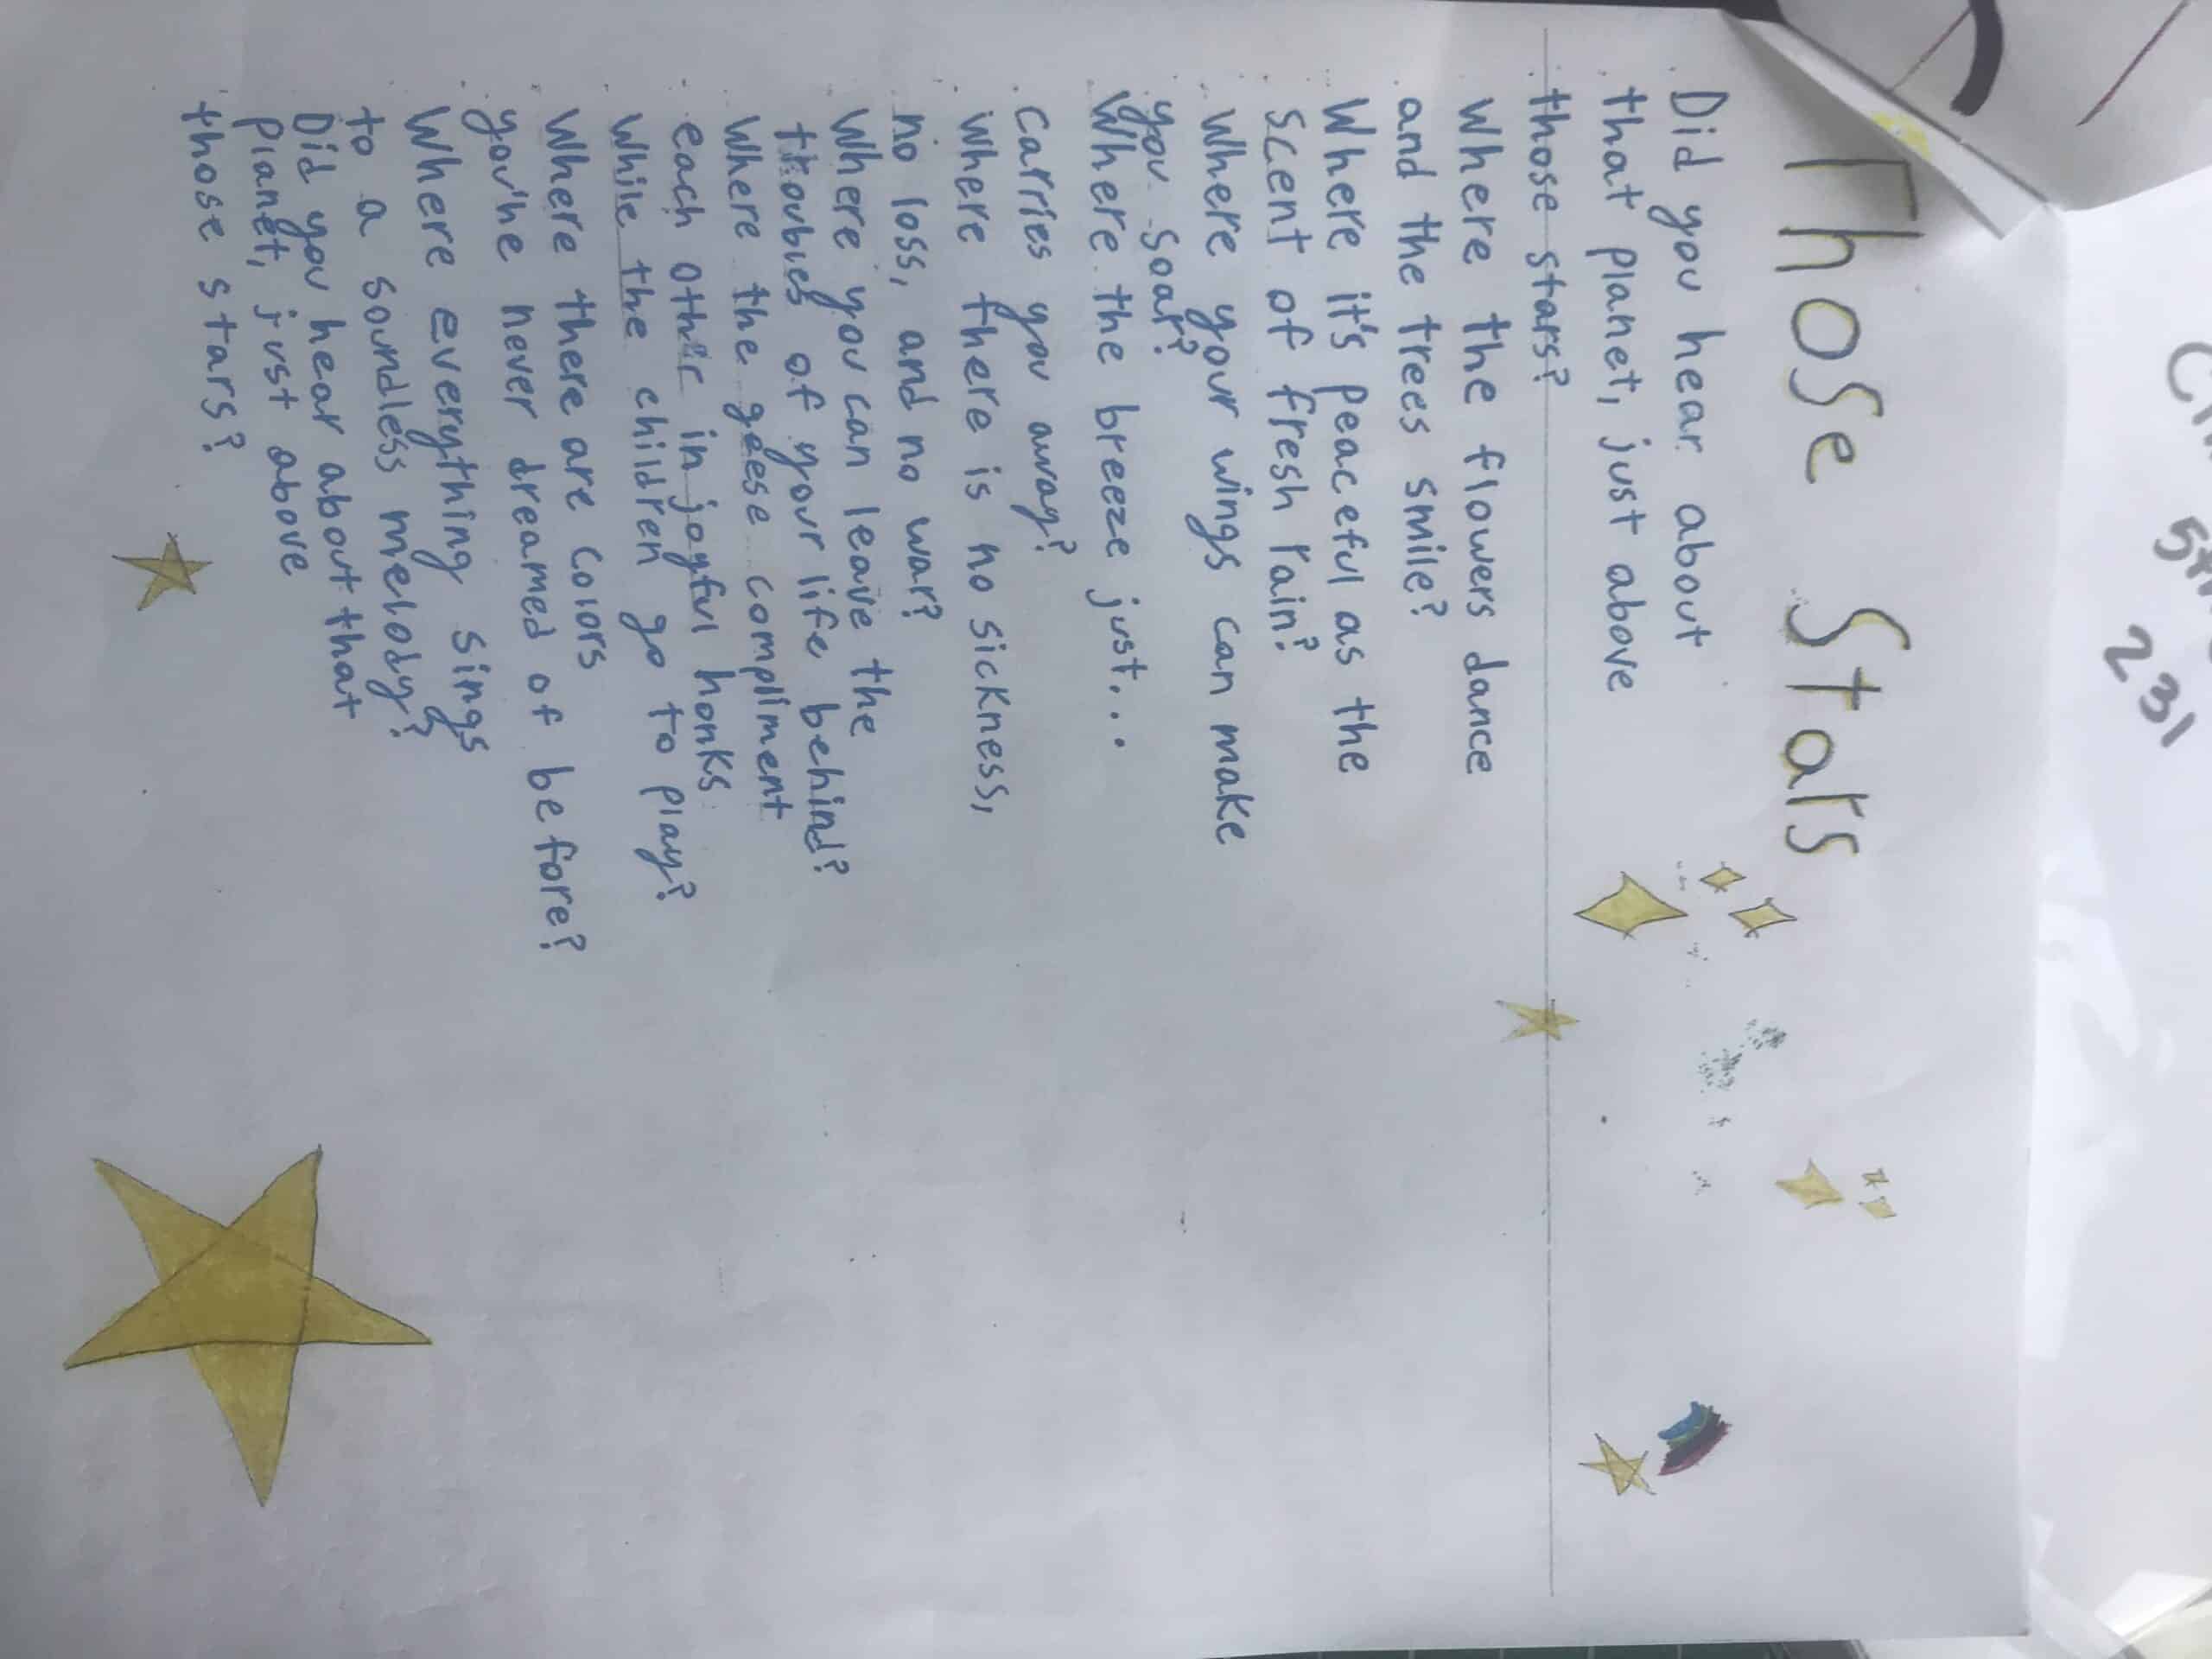 Those Stars
Did you hear about
that planet, just above
those stars?
Where the flowers dance
and the trees smile?
Where it's peaceful as the
scent of fresh rain?
Where your wings can make
you soar?
Where the breeze just...
carries you away?
Where there is no sickness,
no loss, and no war?
Where you can leave the
troubles of your life behind?
Where the geese compliment
each other in joyful honks
while the children go to play?
Where there are colors
you've never dreamed of before?
Where everything sings
to a soundless melody?
Did you hear about that
planet, just above
those stars?
231